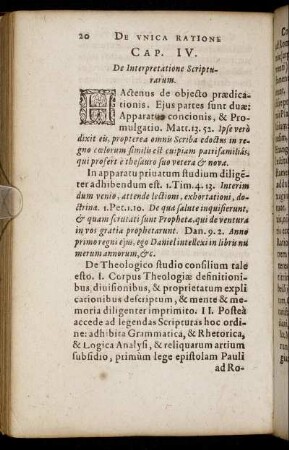 20 DE VNICA RATIONE
CAP. IV.
De Interpretatione Scriptu-
rarum.
HActenus de objecto prædica-
tionis. Ejus partes sunt duæ:
Apparatus concionis, & Pro-
mulgatio. Matt. 13. 52. Ipse verò
dixit eis, propterea omnis Scriba doctus in re-
gno cœlorum similis est cuipiam patrifamiliâs,
qui profert è thesauro suo vetera & nova.
In apparatu priuatum studium diligẽ-
ter adhibendum est. 1. Tim. 4. 13. Interim
dum venio, attende lectioni, exhortationi, do-
ctrina. 1. Pet. 1. 10. De qua salute inquisierunt,
& quam scrutati sunt Propheta, qui de ventura
in vos gratia prophetarunt. Dan. 9. 2. Anno
primo regni ejus, ego Daniel intellexi in libris nu
merum annorum, &c.
De Theologico studio consilium tale
esto. I. Corpus Theologiæ definitioni-
bus, diuisionibus, & proprietatum expli
cationibus descriptum, & mente & me-
moria diligenter imprimito. II. Posteà
accede ad legendas Scripturas hoc ordi-
ne: adhibita Grammatica, & Rhetorica,
& Logica Analysi, & reliquarum artium
subsidio, primùm lege epistolam Pauli
ad Ro-